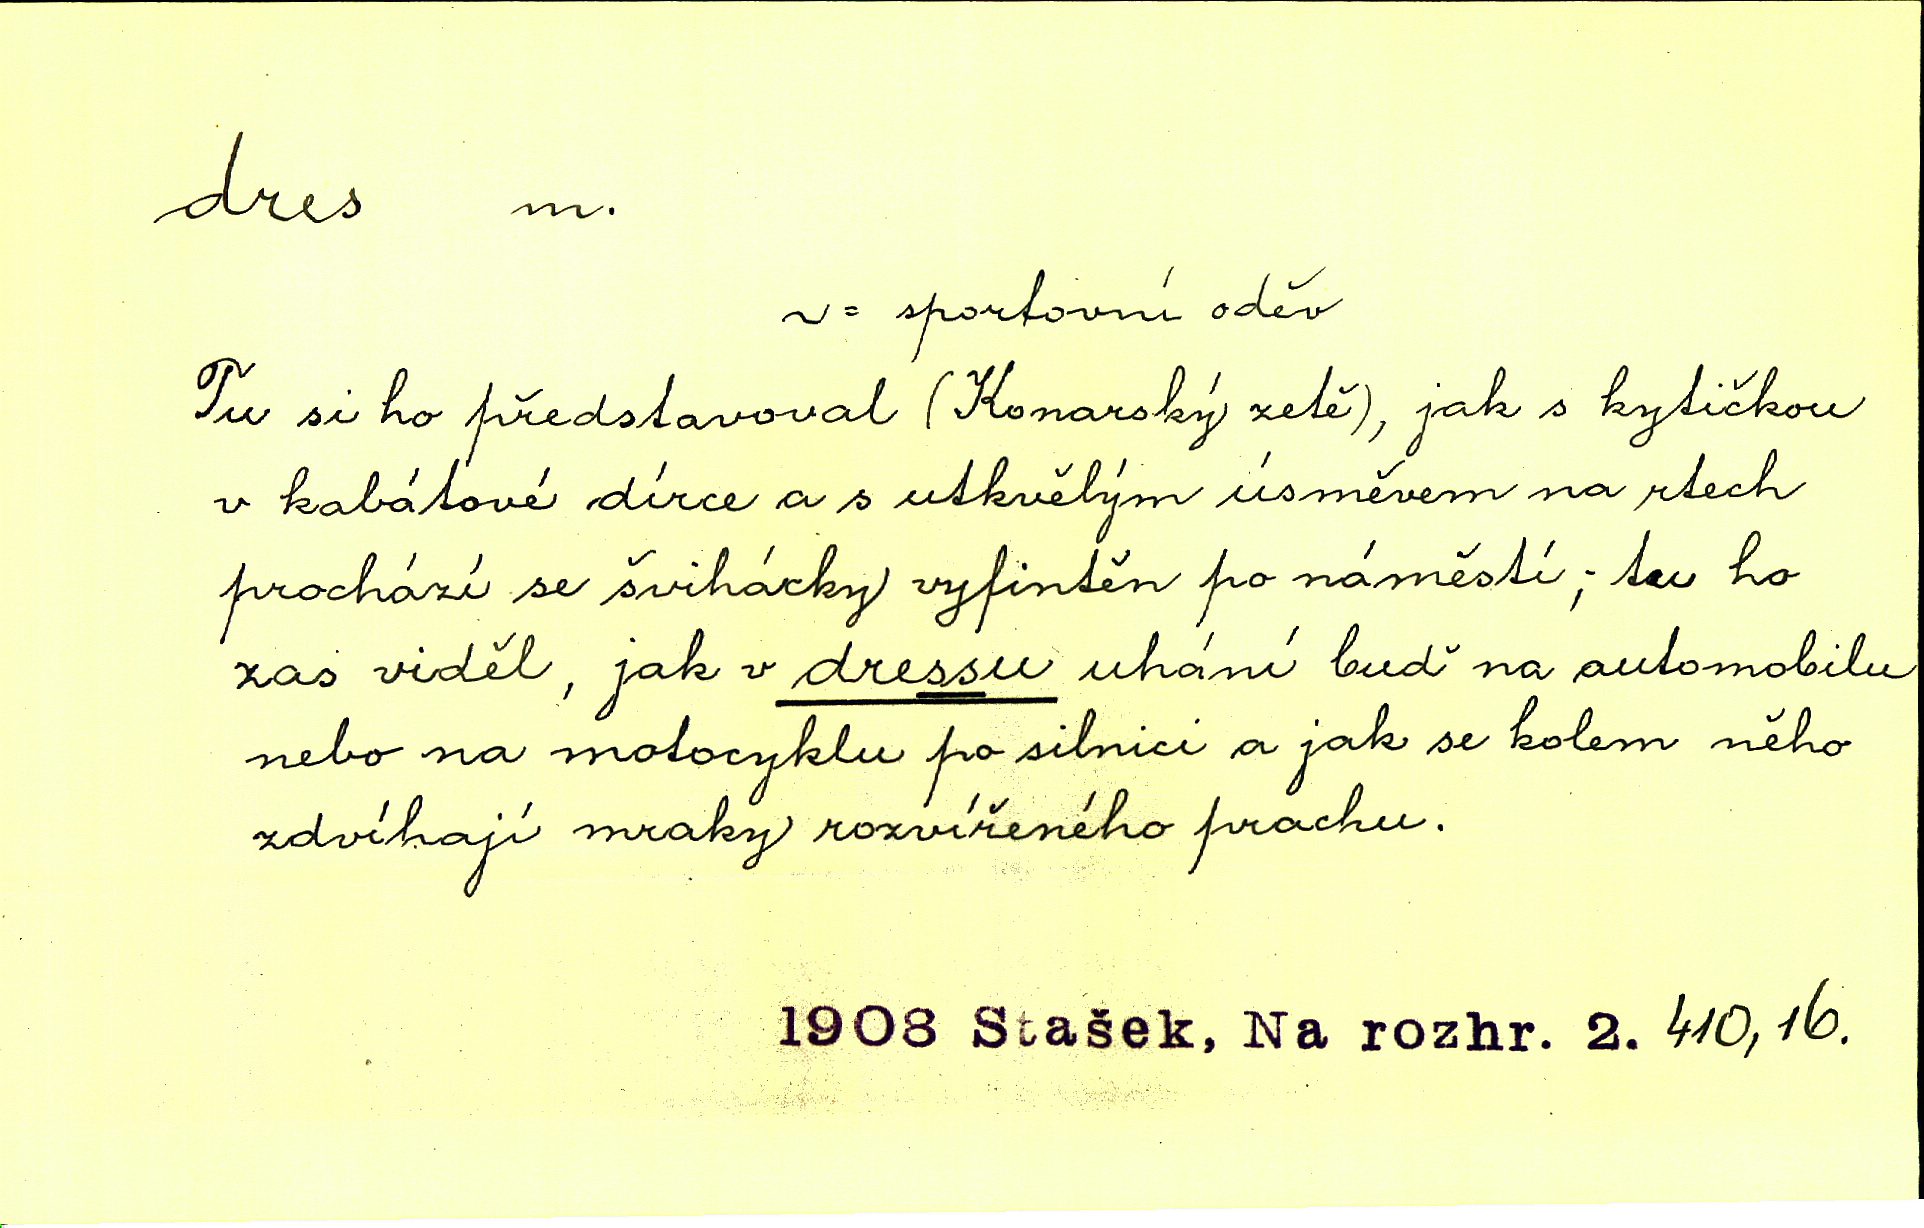 dres m.
v = sportovní oděv
Tu si ho představoval (Konarský zetě), jak s kytičkou
v kabátové dírce a s utkvělým úsměvem na rtech
prochází se švihácky vyfintěn po náměstí; tu ho
zas viděl, jak v dressu uhání buď na automobilu
nebo na motocyklu po silnici a jak se kolem něho
zdvíhají mraky rozvířeného prachu.
1908 Stašek, Na rozhr. 2. 410,16.